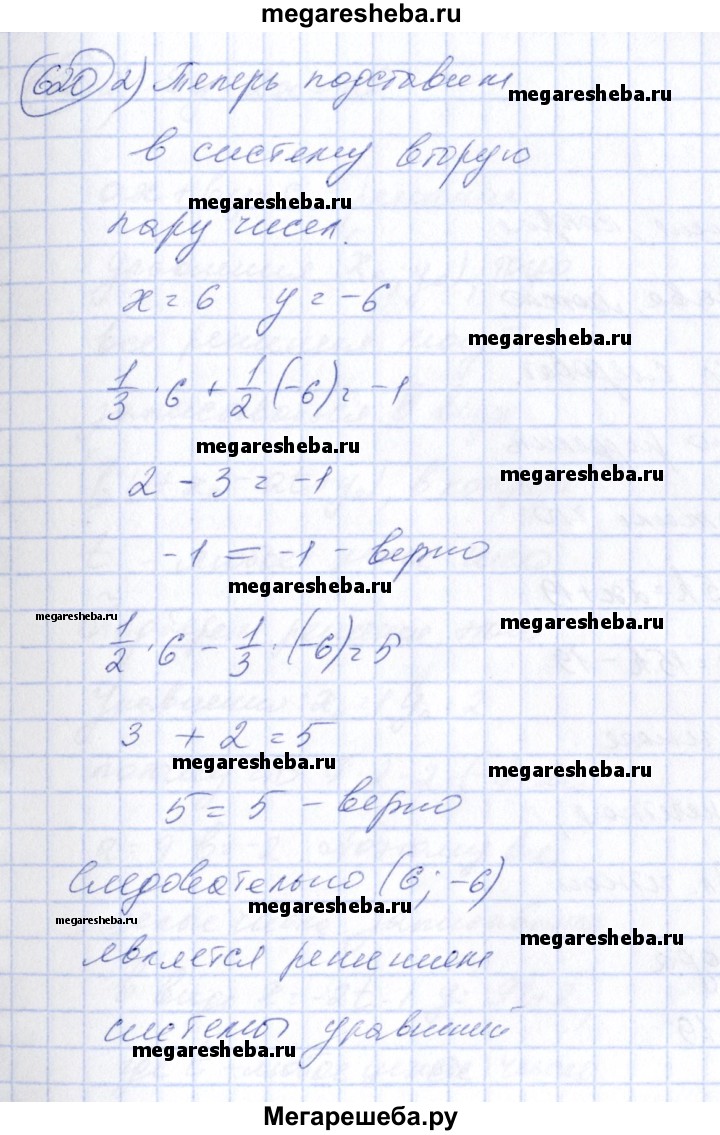 megaresheba.ru
620 2) Теперь подставим
megaresheba.ru
в систему вторую
megaresheba.ru
пару чисел.
x = 6 y = -6
megaresheba.ru
1/3 · 6 + 1/2 (-6) = -1
megaresheba.ru
megaresheba.ru
2 - 3 = -1
-1 = -1 - верно
megaresheba.ru
megaresheba.ru
megaresheba.ru
1/2 · 6 - 1/3 · (-6) = 5
3 + 2 = 5
megaresheba.ru
megaresheba.ru
5 = 5 - верно
Следовательно (6; -6)
megaresheba.ru
megaresheba.ru
megaresheba.ru
является решением
системы уравнений
megaresheba.ru
Мегарешеба.ру